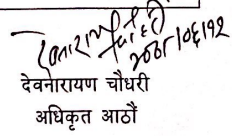 २०८१/०६/१२
देवनारायण चौधरी
अधिकृत आठौं